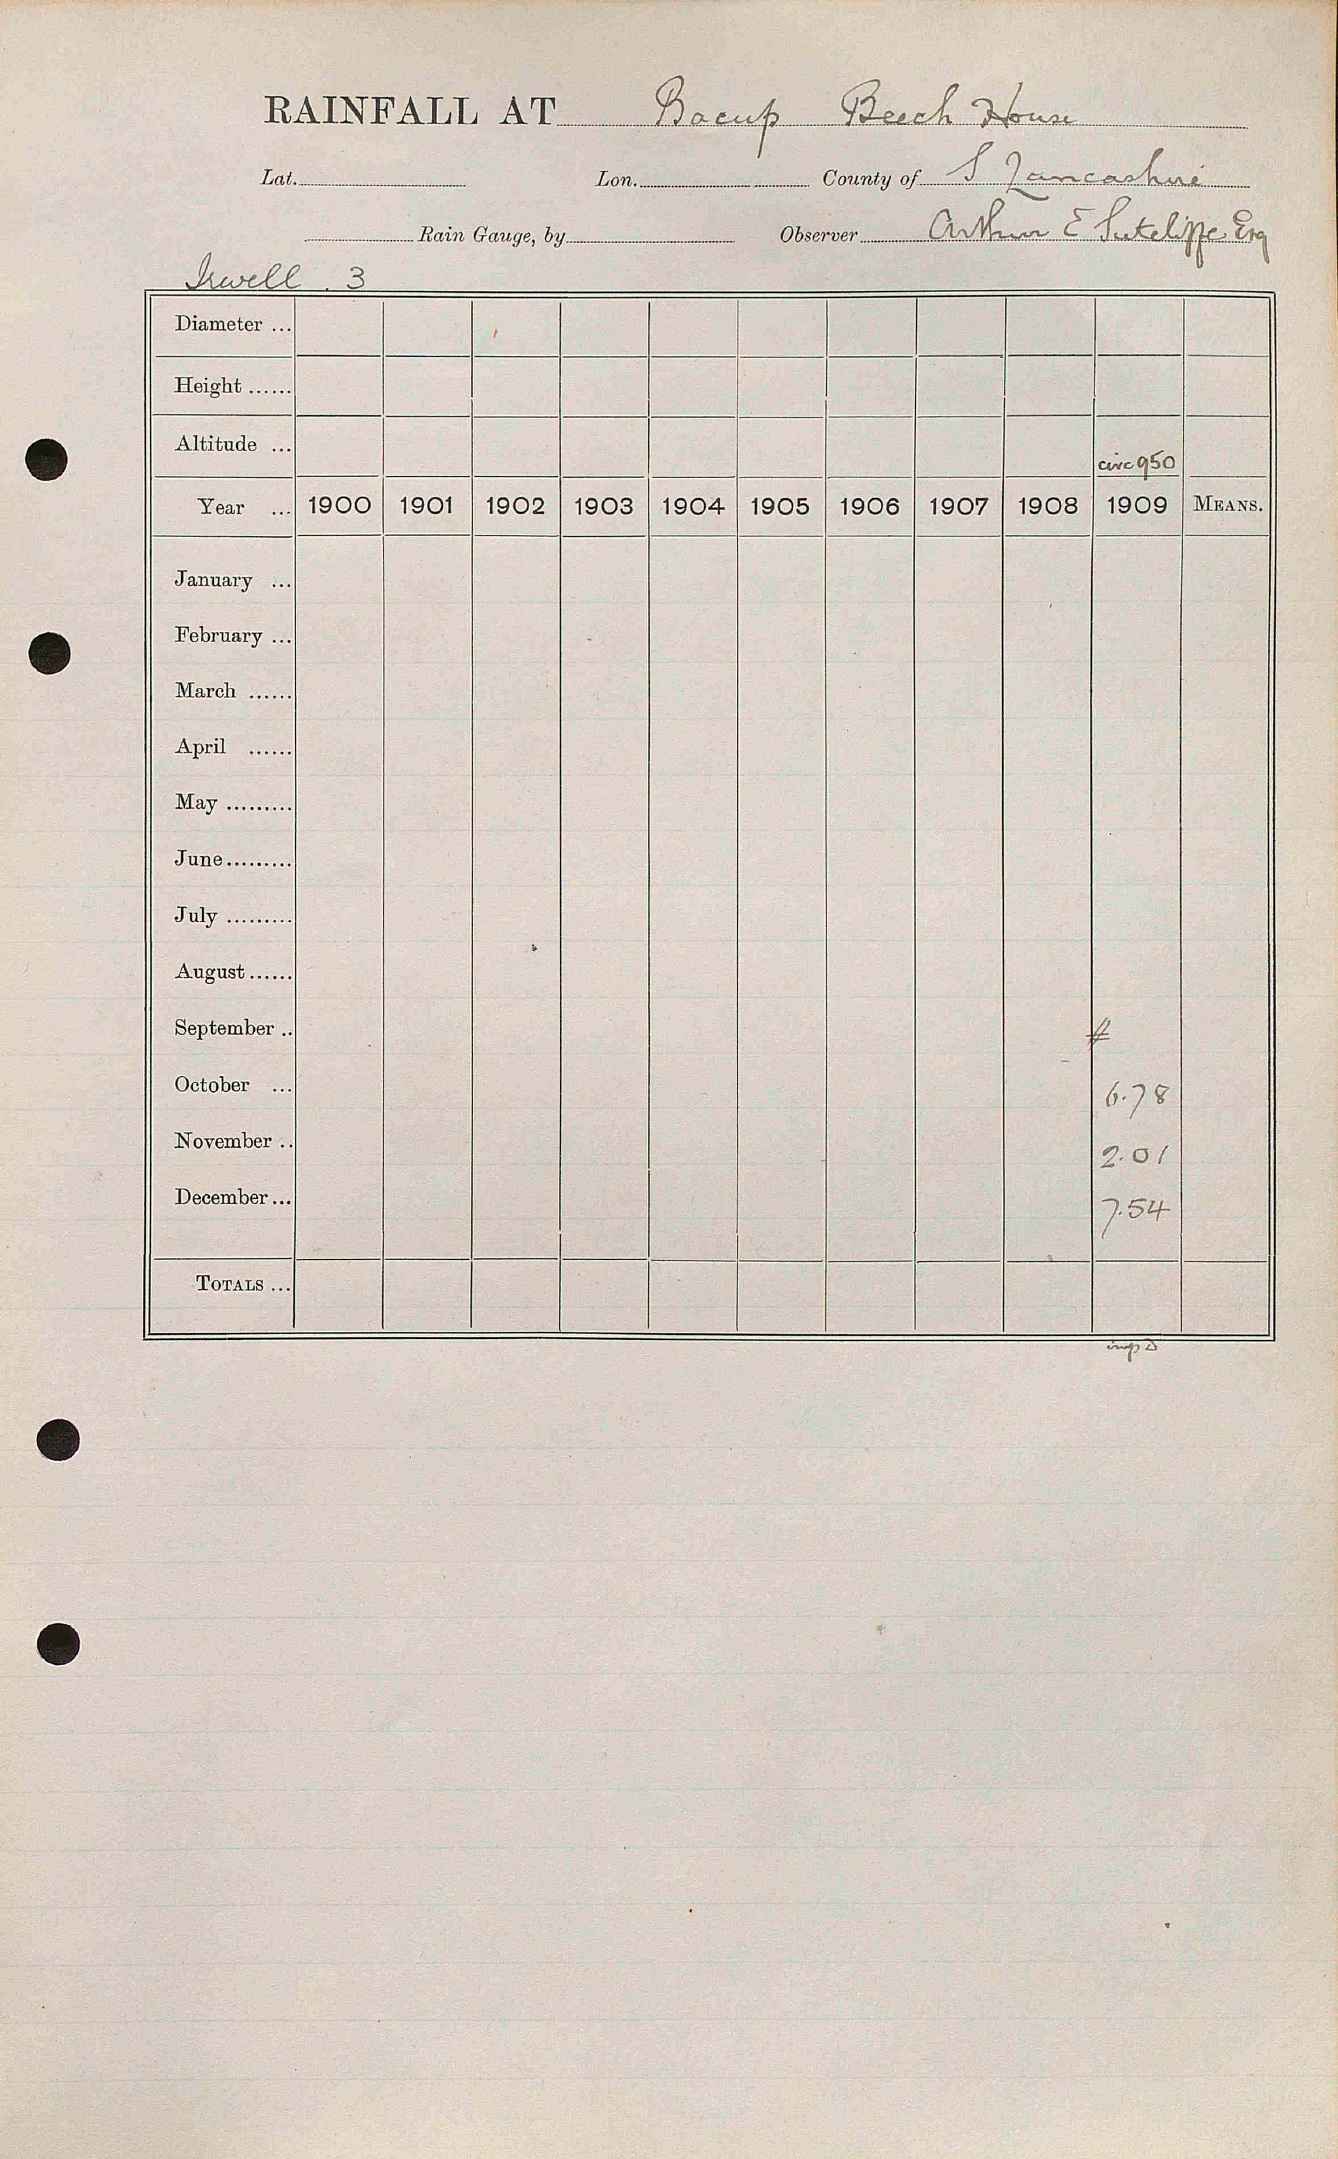 RAINFALL AT Bacup Beech House
Lat. Lon. County of S Lancashire
Rain Gauge, by Observer Arthur E Sutcliffe Esq
Irwell . 3
Diameter ...
Height ......
Altitude ... circ 950
Year ... 1900 1901 1902 1903 1904 1905 1906 1907 1908 1909 MEANS.
January ...
February ...
March ......
April ......
May .........
June.........
July .........
August......
September .. #
October ... 6.78
November .. 2.01
December... 7.54
TOTALS ...